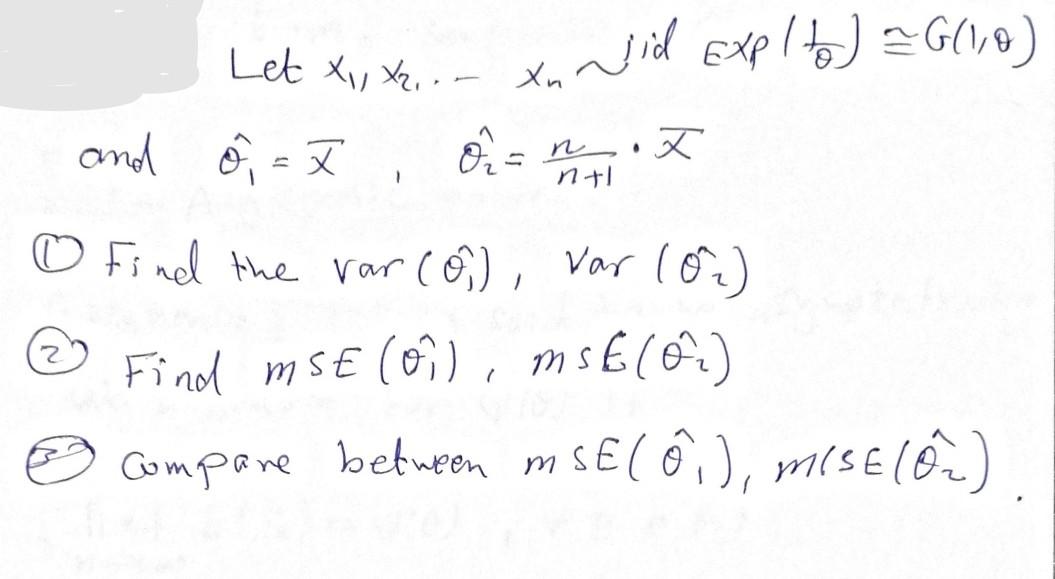 Let x₁, x₂, .. - xₙ ~ iid EXP(1/θ) ≅ G(1,θ)
and θ̂₁ = x̄ , θ̂₂ = n/(n+1) · x̄
① Find the var(θ̂₁), Var(θ̂₂)
② Find mSE(θ̂₁), msE(θ̂₂)
③ Compare between mSE(θ̂₁), mSE(θ̂₂).